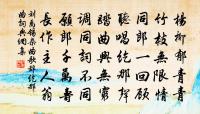 楊柳郁青青
竹枝無限情
同郎一回顧
聽唱紇那聲
踏曲興無窮
調同詞不同
願郎千萬壽
長作主人翁
劉禹錫雜曲歌辭紇那
曲詞典網集